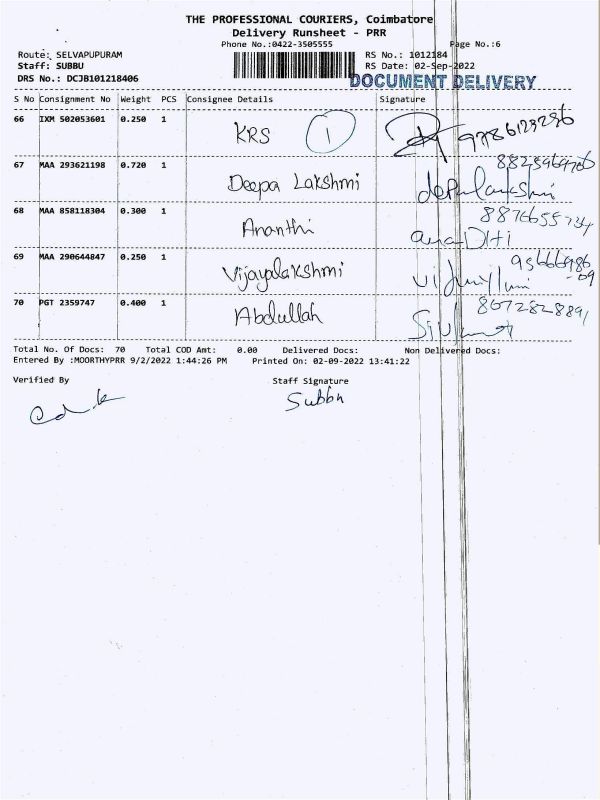 THE PROFESSIONAL COURIERS, Coimbatore
Delivery Runsheet - PRR
Phone No.:0422-3505555 Page No.:6
Route: SELVAPUPURAM RS No.: 1012184
Staff: SUBBU RS Date: 02-Sep-2022
DRS No.: DCJB101218406 DOCUMENT DELIVERY
S No Consignment No Weight PCS Consignee Details Signature
66 IXM 502053601 0.250 1 KRS 1 9786123236
67 MAA 293621198 0.720 1 Deepa Lakshmi
68 MAA 858118304 0.300 1 Ananthi 8876655734
69 MAA 290644847 0.250 1 Vijayalakshmi
70 PGT 2359747 0.400 1 Abdullah 8072828891
Total No. Of Docs: 70 Total COD Amt: 0.00 Delivered Docs: Non Delivered Docs:
Entered By :MOORTHYPRR 9/2/2022 1:44:26 PM Printed On: 02-09-2022 13:41:22
Verified By Staff Signature
Subbu